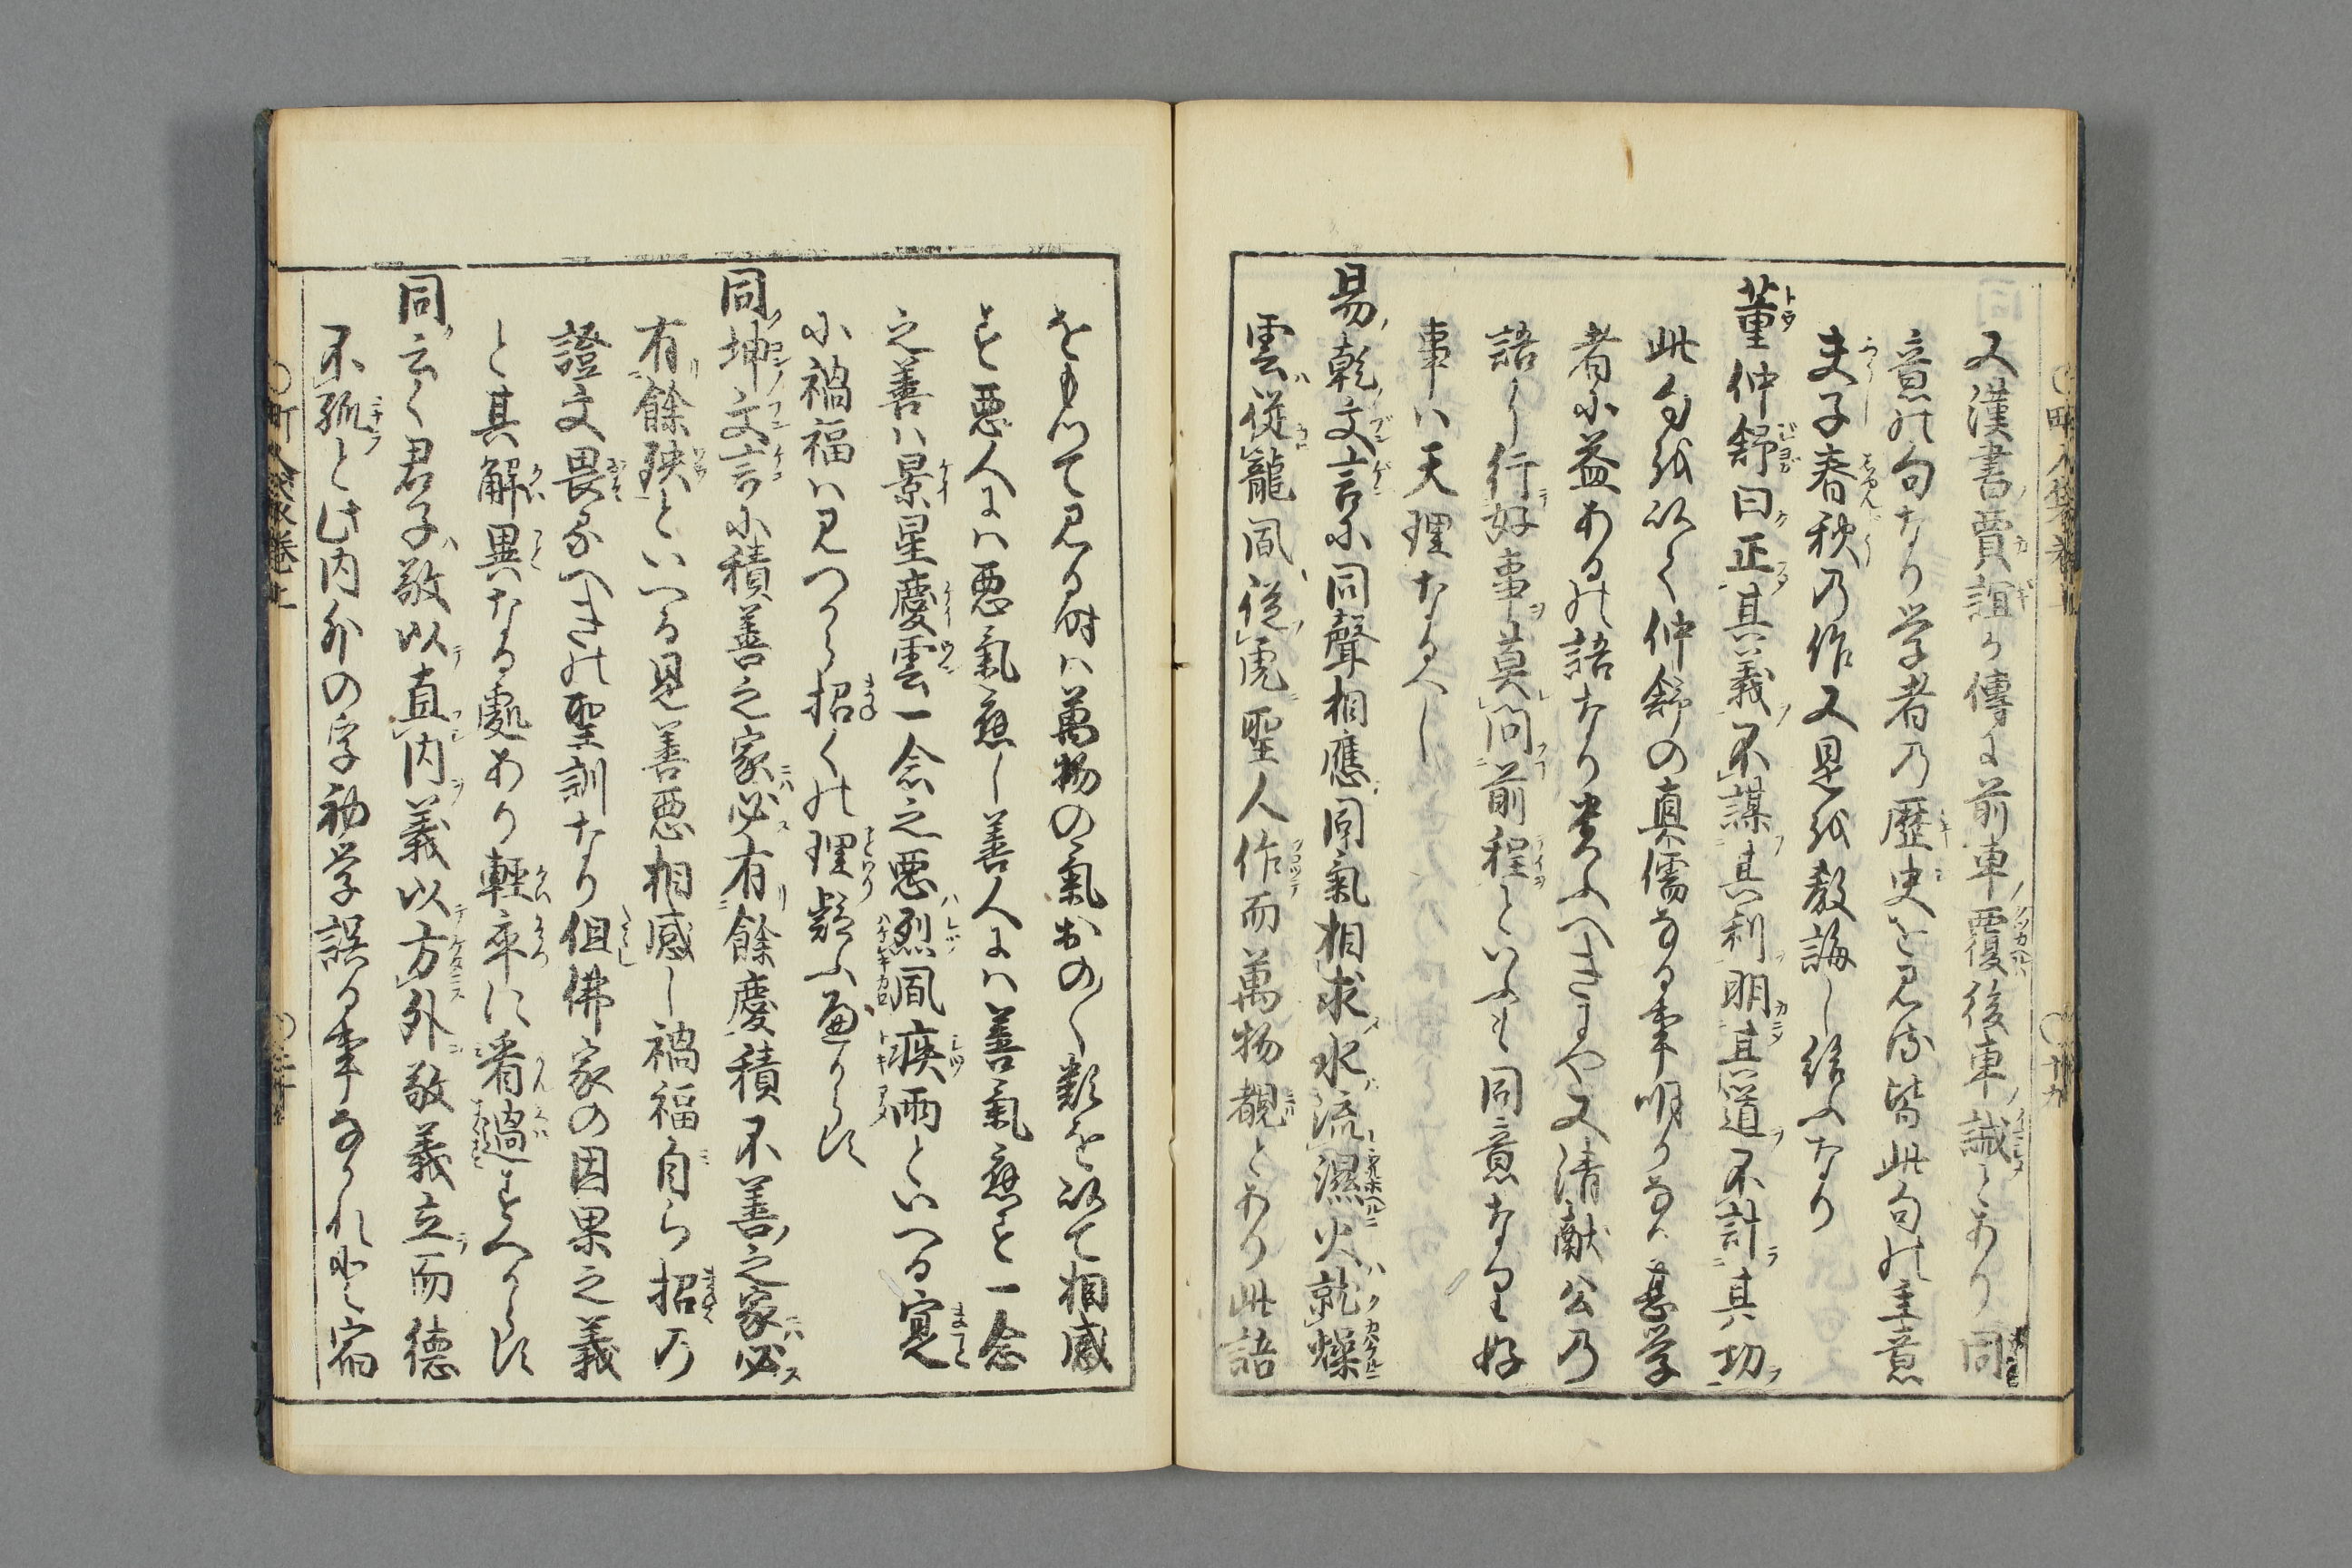 又漢書賈誼か傳に前車覆後車誡とあり同
意の句なり学者の歴史を見る皆此句の主意
夫子春秋の作又是を教誨し給ふなり
董仲舒曰正其義不謀其利明其道不計其功
此句を以て仲舒の真儒なる事明かなり甚学
者に益あるの語なり貴ふへきにや又清献公の
語に行好事莫問前程といふも同意なり好
事ハ天理なるへし
易乾文言に同聲相應同氣相求水流濕火就燥
雲從龍風從虎聖人作而萬物覩とあり此語
をもつて見る時ハ萬物の氣おの〱類を以て相感
す悪人にハ悪氣應し善人にハ善氣應す一念
之善ハ景星慶雲一念之悪烈風疾雨といへる寔
に禍福ハ見つから招くの理疑ふへからす
同坤文言に積善之家必有餘慶積不善之家必
有餘殃といへる是善悪相感し禍福自ら招の
證文畏るへきの聖訓なり但佛家の因果之義
と其解異なる處あり輕卒に看過すへからす
同云く君子敬以直内義以方外敬義立而徳
不孤と此内外の字初学誤る事なかれ
町人囊巻
十九